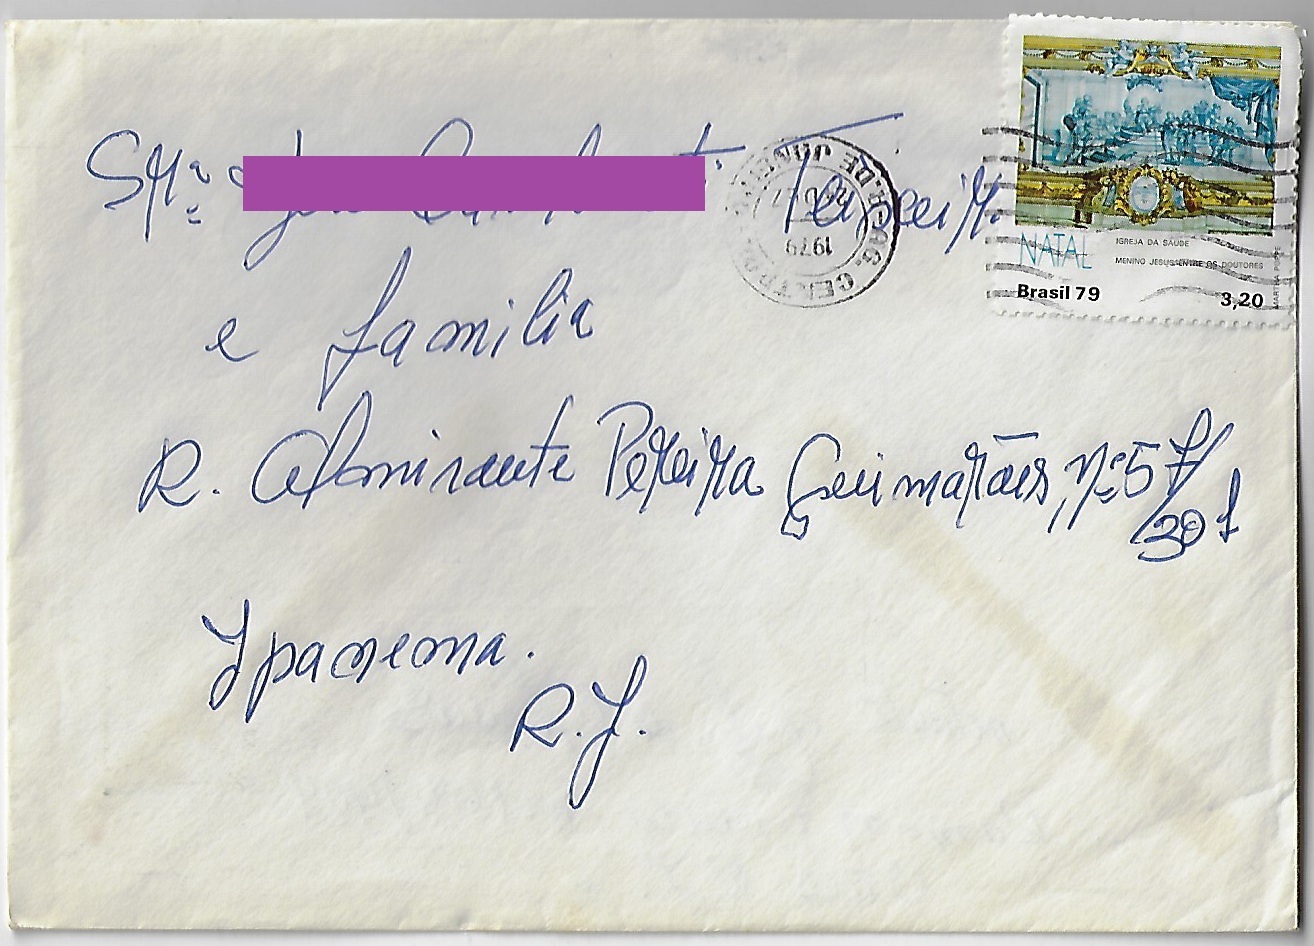 Srª Teixeira
e familia
R. Almirante Pereira Guimarães, nº 57/
301
Ipanema.
R.J.
AG. CENTRAL
RIO DE JANEIRO
1979
NATAL
IGREJA DA SAÚDE
MENINO JESUS ENTRE OS DOUTORES
Brasil 79
3,20